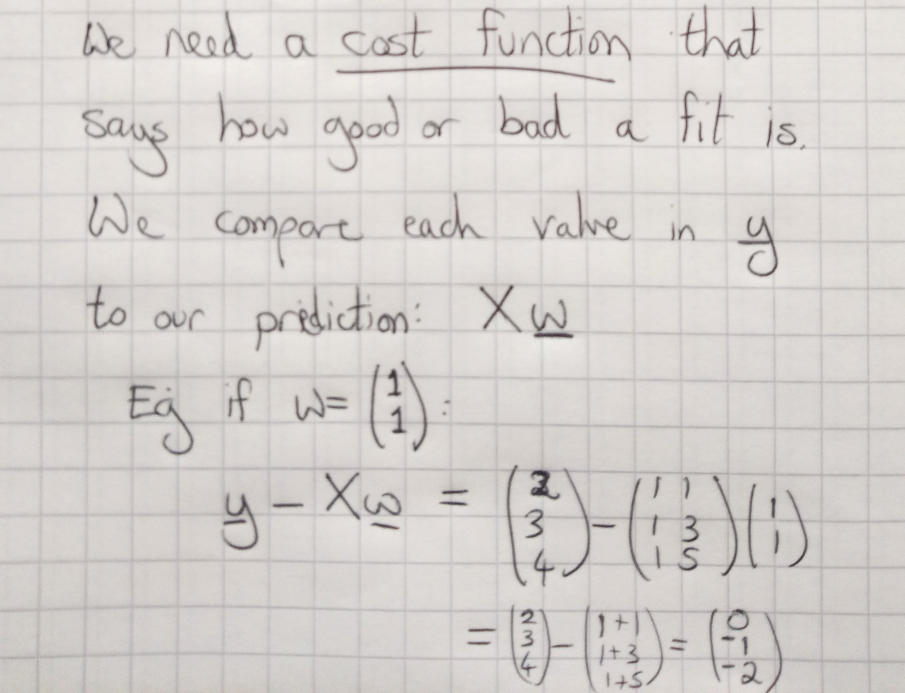 We need a cost function that
says how good or bad a fit is.
We compare each value in y
to our prediction: Xw
Eg if w= (1 1):
y - Xw = (2 3 4) - (1 1 1 3 1 5) (1 1)
= (2 3 4) - (1+1 1+3 1+5) = (0 -1 -2)